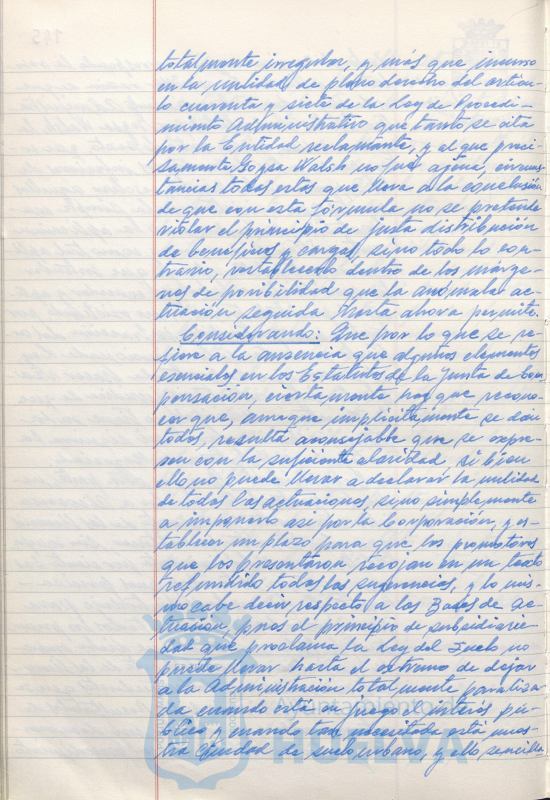 totalmente irregular, y más que incurso
en la nulidad de pleno derecho del artícu-
lo cuarenta y siete de la Ley de Procedi-
miento Administrativo que tanto se cita
por la Entidad reclamante, y al que preci-
samente Goysa Walsh no fué ajena, circuns-
tancias todas estas que lleva a la conclusión
de que con esta fórmula no se pretende
violar el principio de justa distribución
de beneficios y cargas, sino todo lo con-
trario, restablecerlo dentro de los márge-
nes de posibilidad que la anómala ac-
tuación seguida hasta ahora permite.
Considerando: Que por lo que se re-
fiere a la ausencia que algunos elementos
esenciales en los Estatutos de la Junta de Com-
pensación, ciertamente hay que recono-
cer que, aunque implícitamente se dan
todos, resulta aconsejable que se expre-
sen con la suficiente claridad, si bien
ello no puede llevar a declarar la nulidad
de todas las actuaciones, sino simplemente
a imponerlo así por la Corporación, y es-
tablecer un plazo para que los promotores
que los presentaron recojan en un texto
refundido todas las sugerencias, y lo mis-
mo cabe decir respecto a las Bases de ac-
tuación, pues el principio de subsidiarie-
dad que proclama la Ley del Suelo no
puede llevar hasta el extremo de dejar
a la Administración totalmente paraliza-
da cuando está en juego el interés pú-
blico y cuando tan necesitada está nues-
tra Ciudad de suelo urbano, y ello sencilla-
HUELVA